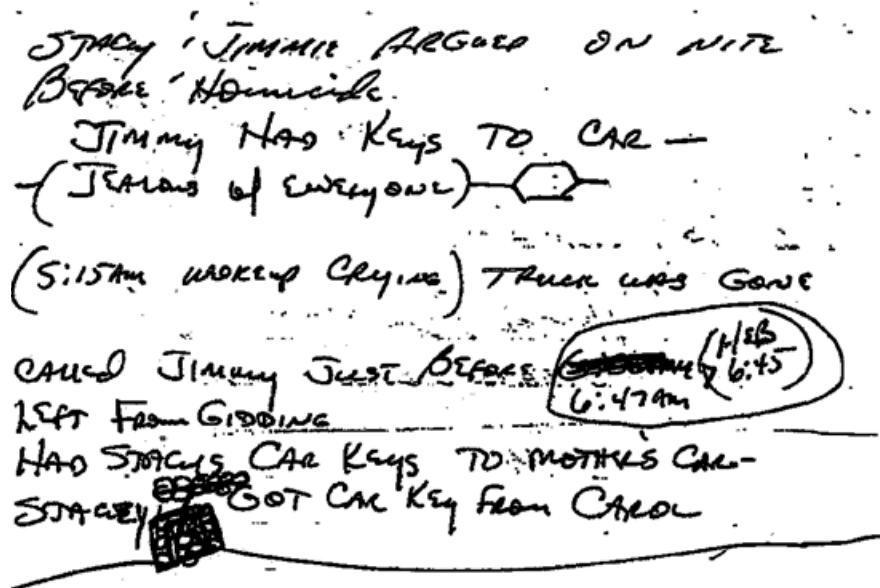 STACY & JIMMIE ARGUED ON NITE
BEFORE Homicide.
JIMMY HAD KEYS TO CAR —
—(JEALOUS of EVERYONE)—
(5:15AM WOKEUP CRYING) TRUCK WAS GONE
CALLED JIMMY JUST BEFORE (HEB
6:47AM 6:45)
LEFT FROM GIDDING
HAD STACYS CAR KEYS TO MOTHERS CAR-
STACEY GOT CAR KEY FROM CAROL